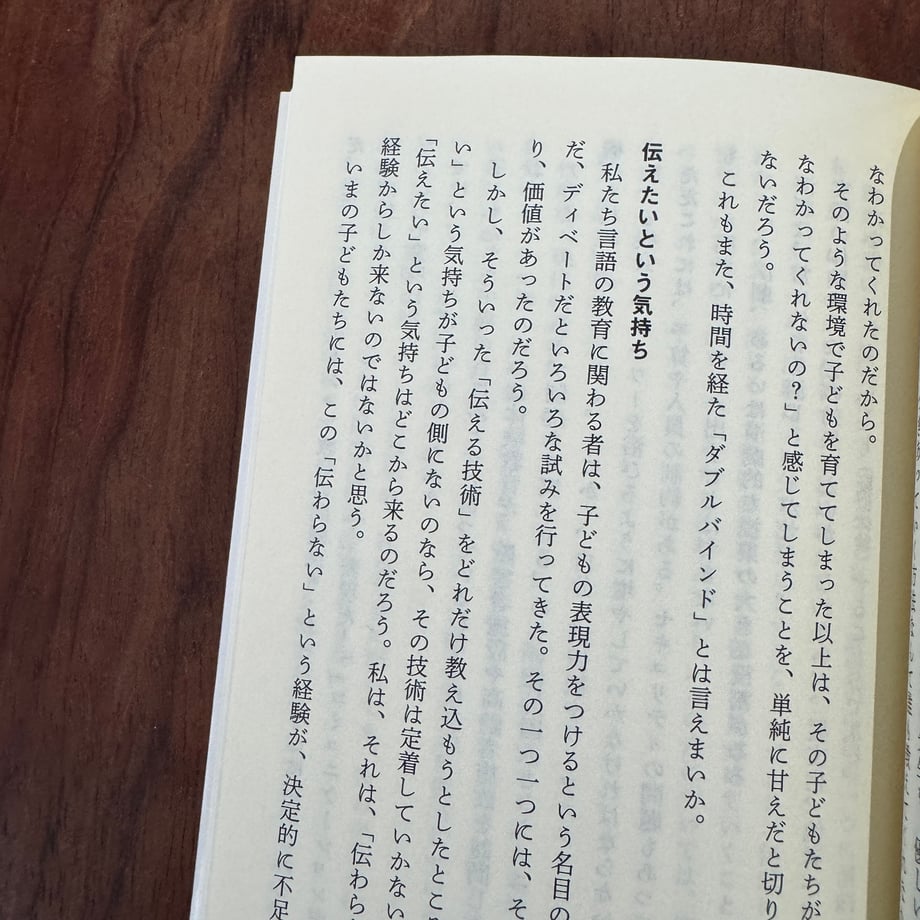 なわかってくれたのだから。
そのような環境で子どもを育ててしまった以上は、その子どもたちが
なわかってくれないの？」と感じてしまうことを、単純に甘えだと切り
ないだろう。
これもまた、時間を経た「ダブルバインド」とは言えまいか。
伝えたいという気持ち
私たち言語の教育に関わる者は、子どもの表現力をつけるという名目の
だ、ディベートだといろいろな試みを行ってきた。その一つ一つには、そ
り、価値があったのだろう。
しかし、そういった「伝える技術」をどれだけ教え込もうとしたところ
い」という気持ちが子どもの側にないのなら、その技術は定着していかない
「伝えたい」という気持ちはどこから来るのだろう。私は、それは、「伝わら
経験からしか来ないのではないかと思う。
いまの子どもたちには、この「伝わらない」という経験が、決定的に不足